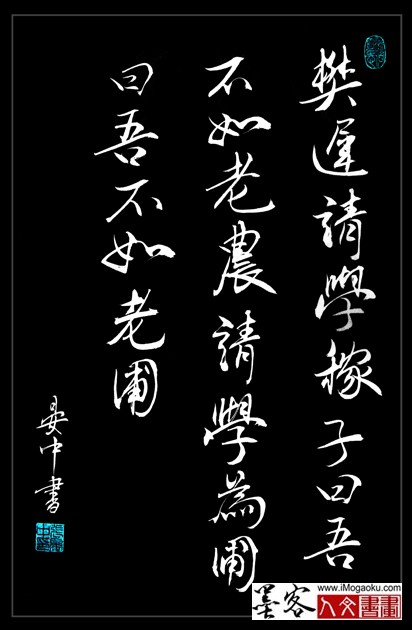 樊遲請學稼子曰吾
不如老農請學為圃
曰吾不如老圃
晏中書
www.iMogaoku.com
墨客
人文書畫